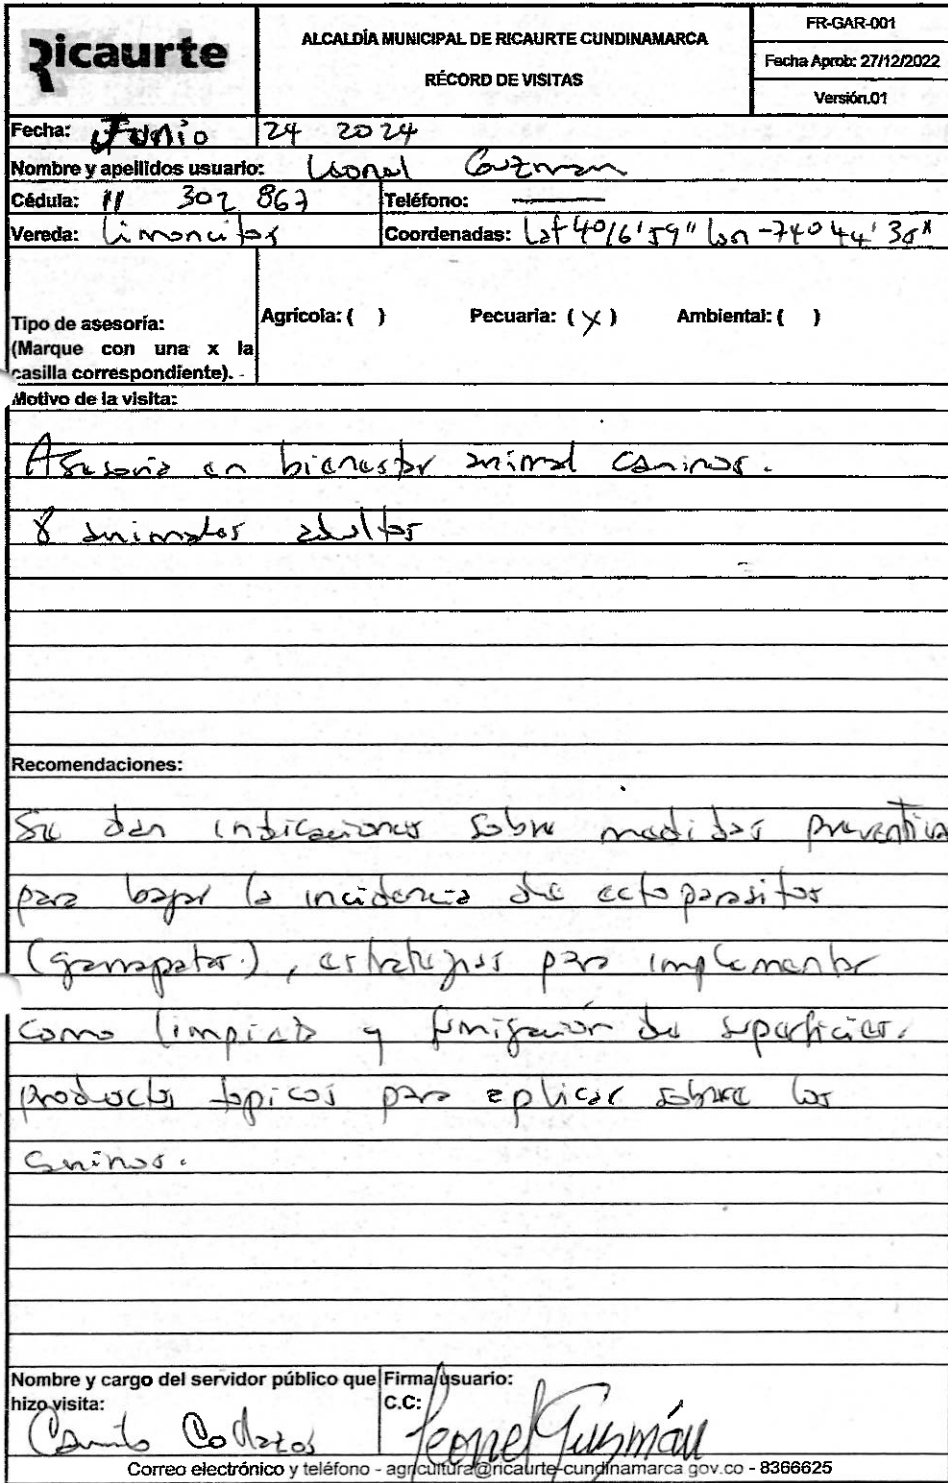 Ricaurte
ALCALDÍA MUNICIPAL DE RICAURTE CUNDINAMARCA
RÉCORD DE VISITAS
FR-GAR-001
Fecha Aprob: 27/12/2022
Versión.01
Fecha: Junio 24 2024
Nombre y apellidos usuario: Leonel Guzman
Cédula: 11 302 867 Teléfono:
Vereda: Limoncitos Coordenadas: Lat 4°16'59" lon -74°44'38"
Tipo de asesoría:
(Marque con una x la
casilla correspondiente).
Agrícola: ( ) Pecuaria: ( X ) Ambiental: ( )
Motivo de la visita:
Asesoria en bienestar animal caninos.
8 animales adultos
Recomendaciones:
Se dan indicaciones sobre medidas preventiva
para bajar la incidencia de ectoparasitos
(garrapatas.), estrategias para implementar
como limpieza y fumigación de superficies.
productos topicos para aplicar sobre los
caninos.
Nombre y cargo del servidor público que
hizo visita:
Camilo Collazos
Firma usuario:
C.C:
Leonel Guzmán
Correo electrónico y teléfono - agricultura@ricaurte-cundinamarca gov.co - 8366625